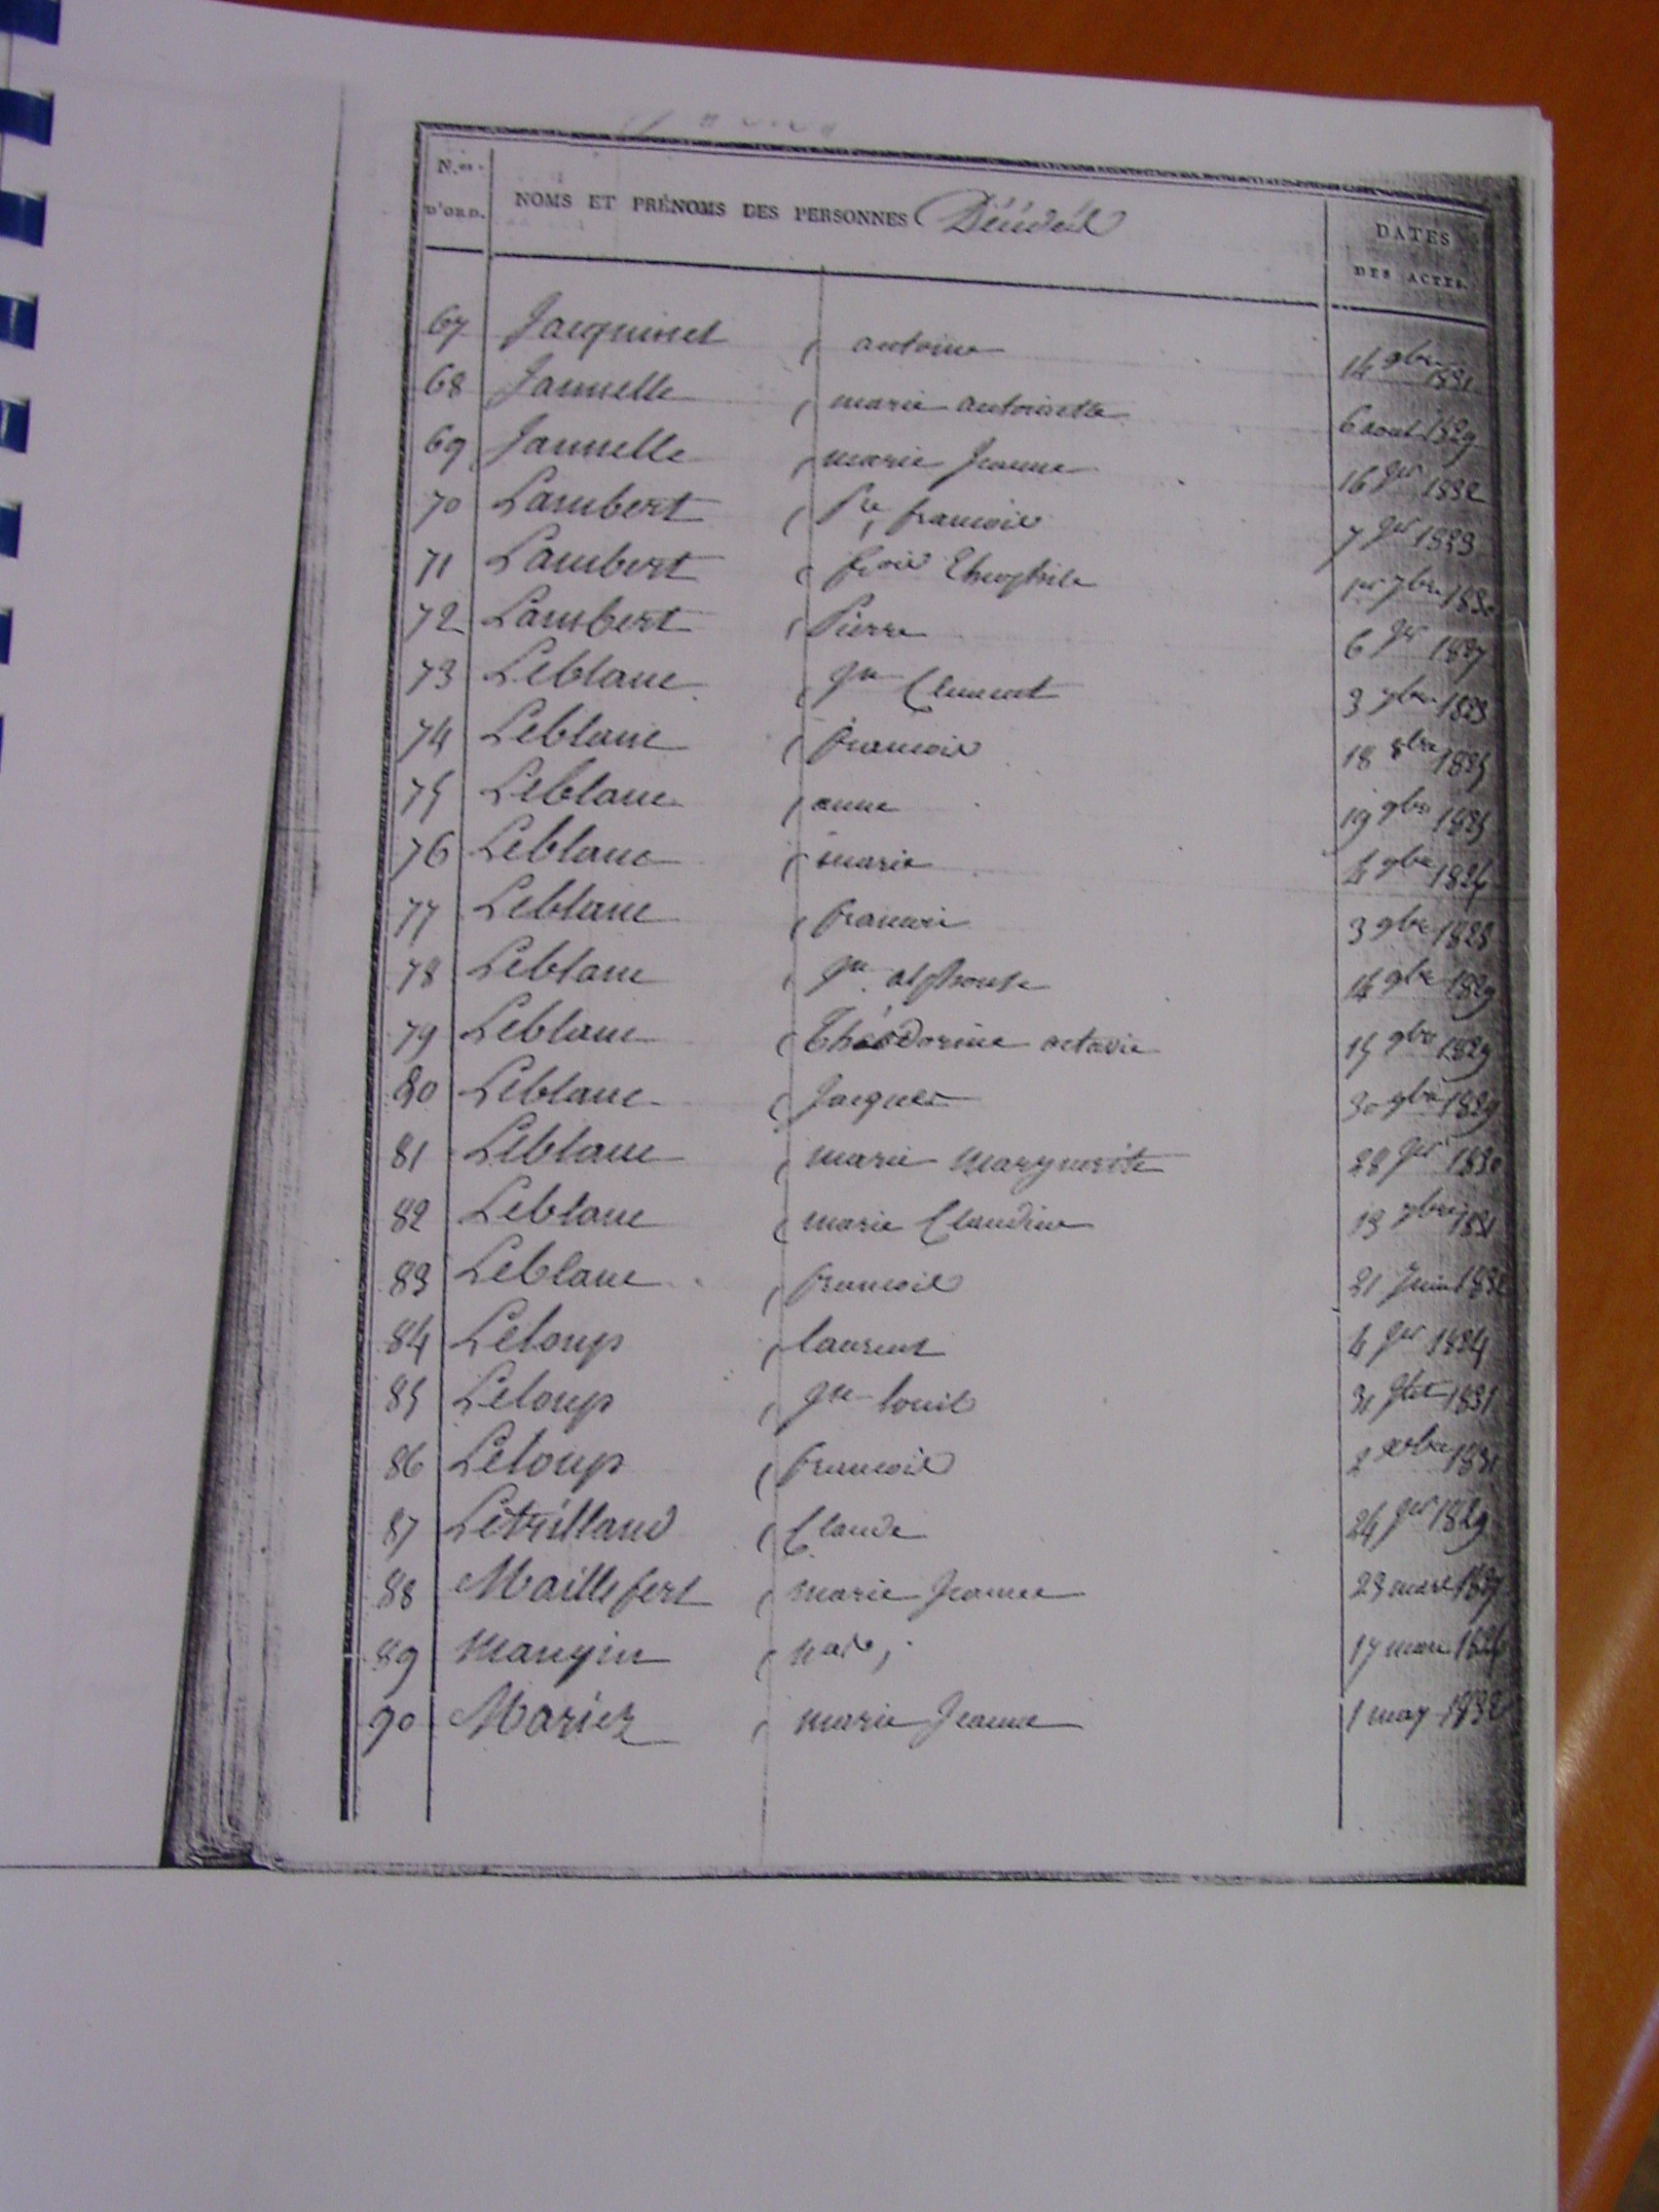 N.os
D'ORD.
NOMS ET PRÉNOMS DES PERSONNES Décédés
DATES
DES ACTES.
67 Jacquinet antoine 14 9bre 1831
68 Jannelle marie antoinette 6 aout 1829
69 Jannelle marie Jeanne 16 Jer 1832
70 Lambert Pre françois 7 Jer 1823
71 Lambert fçois Theophile 1er 7bre 1830
72 Lambert Pierre 6 Jer 1827
73 Leblanc Jn Clement 3 7bre 1823
74 Leblanc françois 18 8bre 1825
75 Leblanc anne 19 9bre 1825
76 Leblanc marie 4 9bre 1826
77 Leblanc francois 3 9bre 1828
78 Leblanc Jn alphonse 14 9bre 1829
79 Leblanc Théodorine octavie 15 9bre 1829
80 Leblanc Jacques 30 9bre 1829
81 Leblanc marie marguerite 28 Jer 1830
82 Leblanc marie Claudine 13 7bre 1831
83 Leblanc francois 21 Juin 1832
84 Leloup laurent 4 Jer 1824
85 Leloup Jn louis 31 Jlet 1831
86 Leloup francois 2 1831
87 Letrillard Claude 24 Jer 1829
88 Maillefert marie Jeanne 23 mars 1827
89 Mangin 17 mars
90 Mariez marie Jeanne 1 may 1832